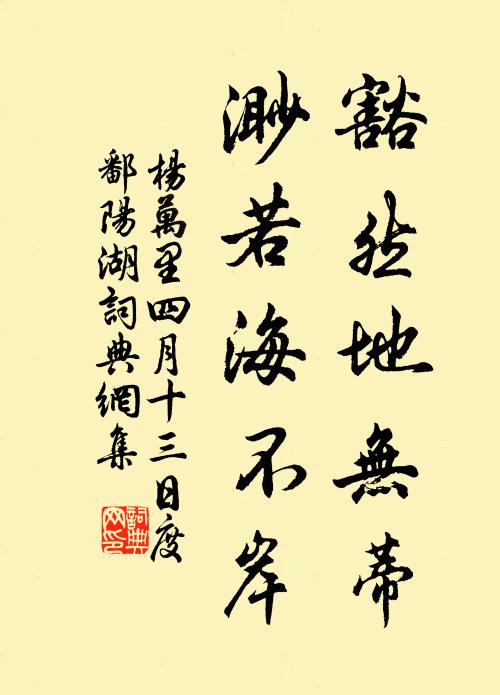 豁然地無蒂
渺若海不岸
楊萬里四月十三日度
鄱陽湖詞典網集
詞典網印